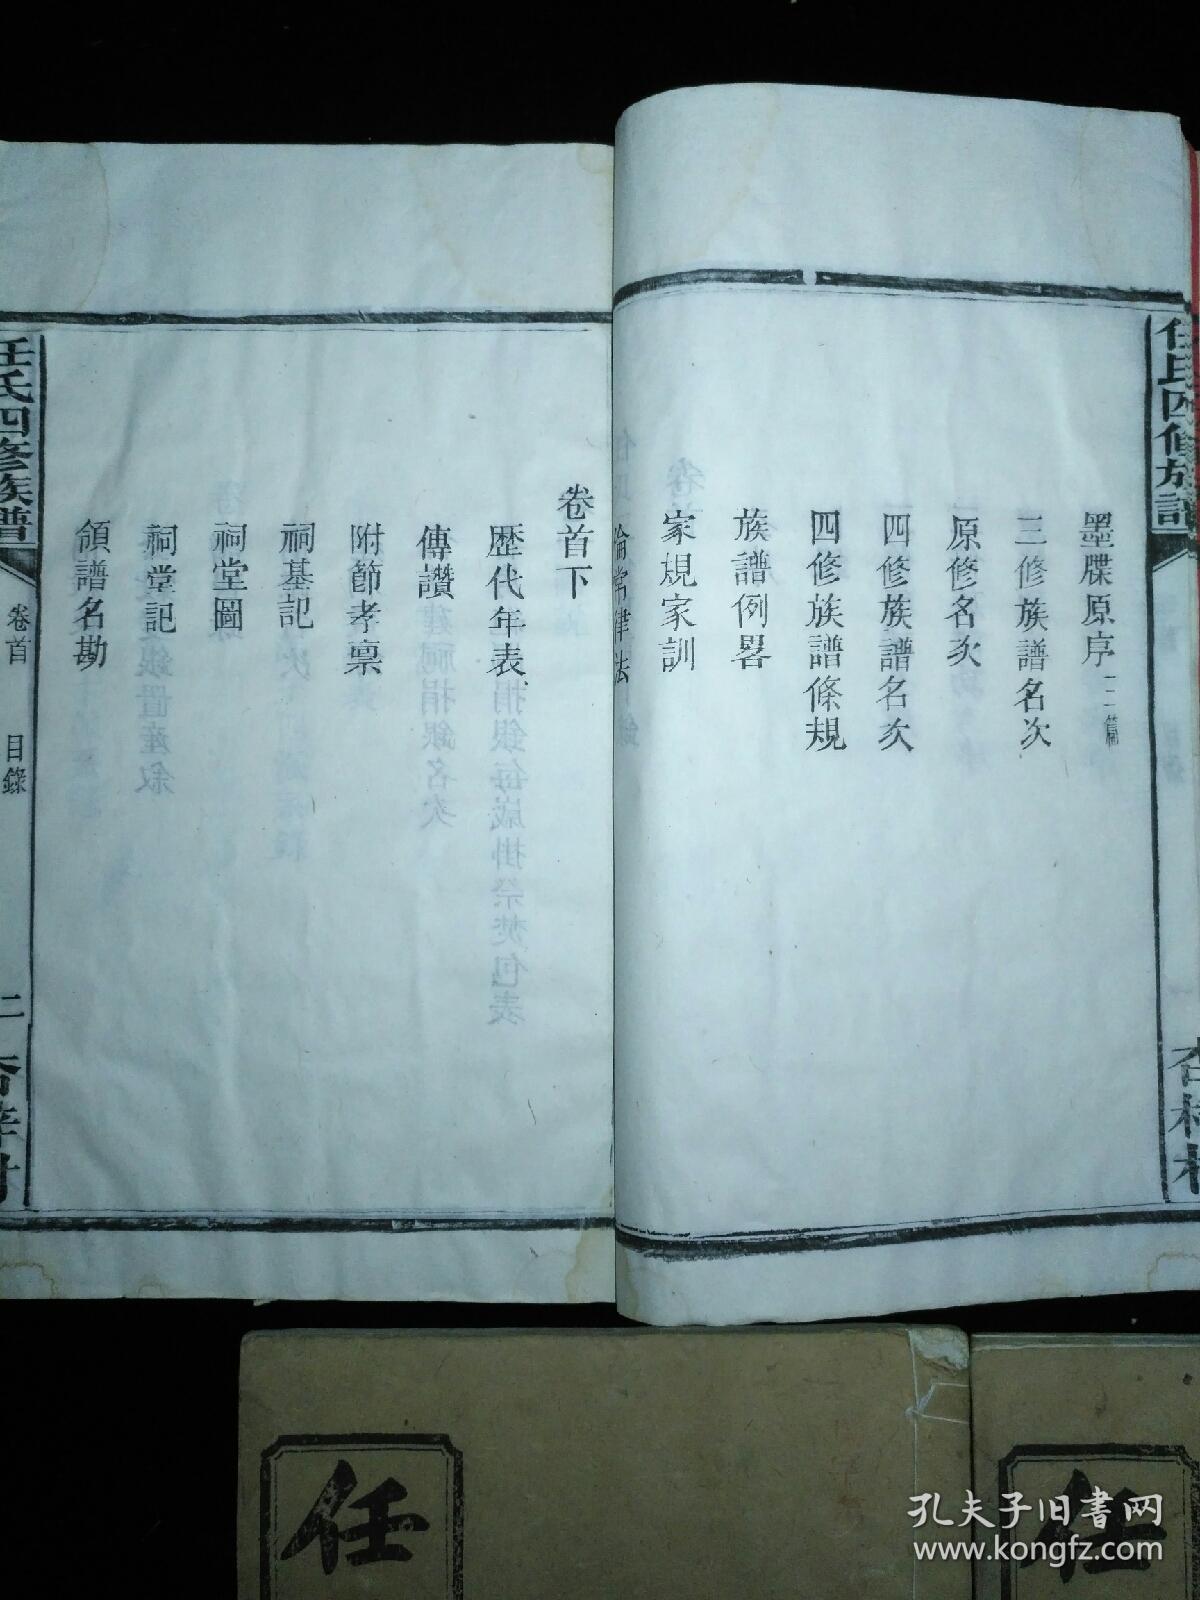 墨牒原序三篇
三修族譜名次
原修名次
四修族譜名次
四修族譜條規
族譜例畧
家規家訓
倫常律法
卷首下
歷代年表
傳讚
附節孝稟
祠基記
祠堂圖
祠堂記
領譜名勘
任氏四修族譜
卷首
目錄
二
任氏四修族譜
任
任
孔夫子旧书网
www.kongfz.com